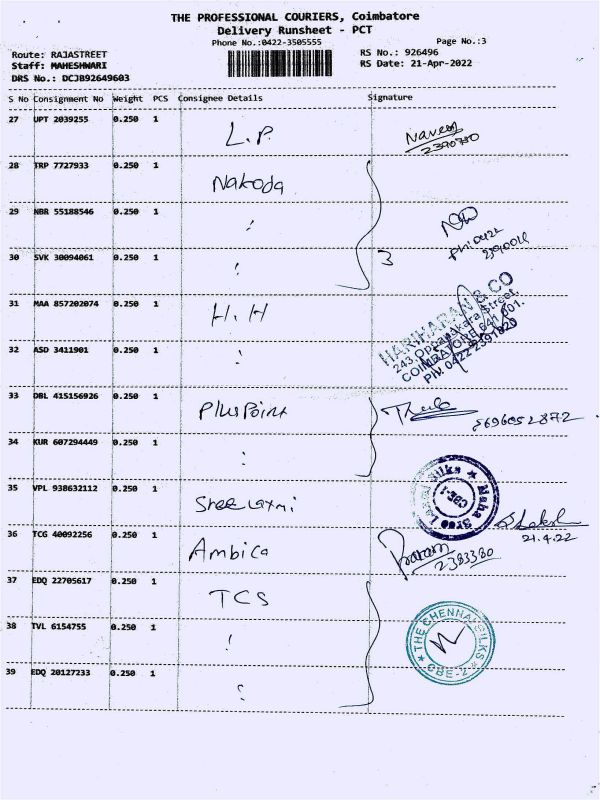 THE PROFESSIONAL COURIERS, Coimbatore
Delivery Runsheet - PCT
Phone No.:0422-3505555
Page No.:3
Route: RAJASTREET
RS No.: 926496
Staff: MAHESHWARI
RS Date: 21-Apr-2022
DRS No.: DCJB92649603
S No Consignment No Weight PCS Consignee Details Signature
27 UPT 2039255 0.250 1 L.P. Naveen
2390780
28 TRP 7727933 0.250 1 Nakoda
29 NBR 55188546 0.250 1
Ph: 0422
30 SVK 30094061 0.250 1 3
31 MAA 857202074 0.250 1 H.H
HARIHARAN & CO
243, Oppanakara Street,
COIMBATORE 641 001.
PH: 0422 2391820
32 ASD 3411901 0.250 1
33 DBL 415156926 0.250 1 PlusPoint
34 KUR 607294449 0.250 1
35 VPL 938632112 0.250 1 Sree Laxmi
Maha Sree Silks
CBE-1
21.4.22
36 TCG 40092256 0.250 1 Ambica
2383380
37 EDQ 22705617 0.250 1 TCS
38 TVL 6154755 0.250 1
THE CHENNAI SILKS
CBE-2
39 EDQ 20127233 0.250 1